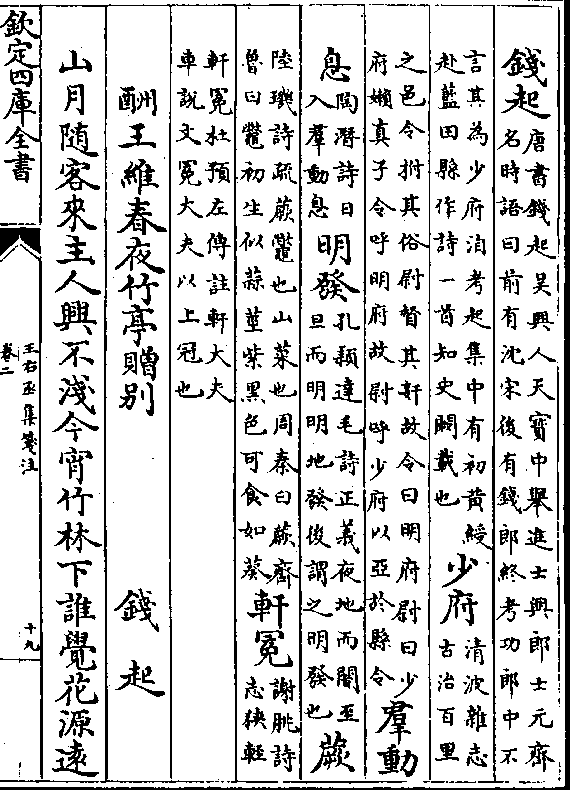 錢起唐書錢起吴興人天寳中舉進士與郎士元齊
名時語曰前有沈宋後有錢郎終考功郎中不
言其為少府消考起集中有初黃綬
赴藍田縣作詩一首知史闕載也少府清波雜志
古治百里
之邑令拊其俗尉督其奸故令曰明府尉曰少
府嬾真子令呼明府故尉呼少府以亞於縣令羣動
息陶潛詩日
入羣動息明發孔穎達毛詩正義夜地而闇至
旦而明明地發後謂之明發也蕨
陸璣詩疏蕨鼈也山菜也周秦曰蕨齊
魯曰鼈初生似蒜莖紫黑色可食如葵軒冕謝朓詩
志狹輕
軒冕杜預左傳註軒大夫
車說文冕大夫以上冠也
酬王維春夜竹亭贈别 錢起
山月随客來主人興不淺今宵竹林下誰覺花源遠
欽定四庫全書
王右丞集箋注
卷二
十九